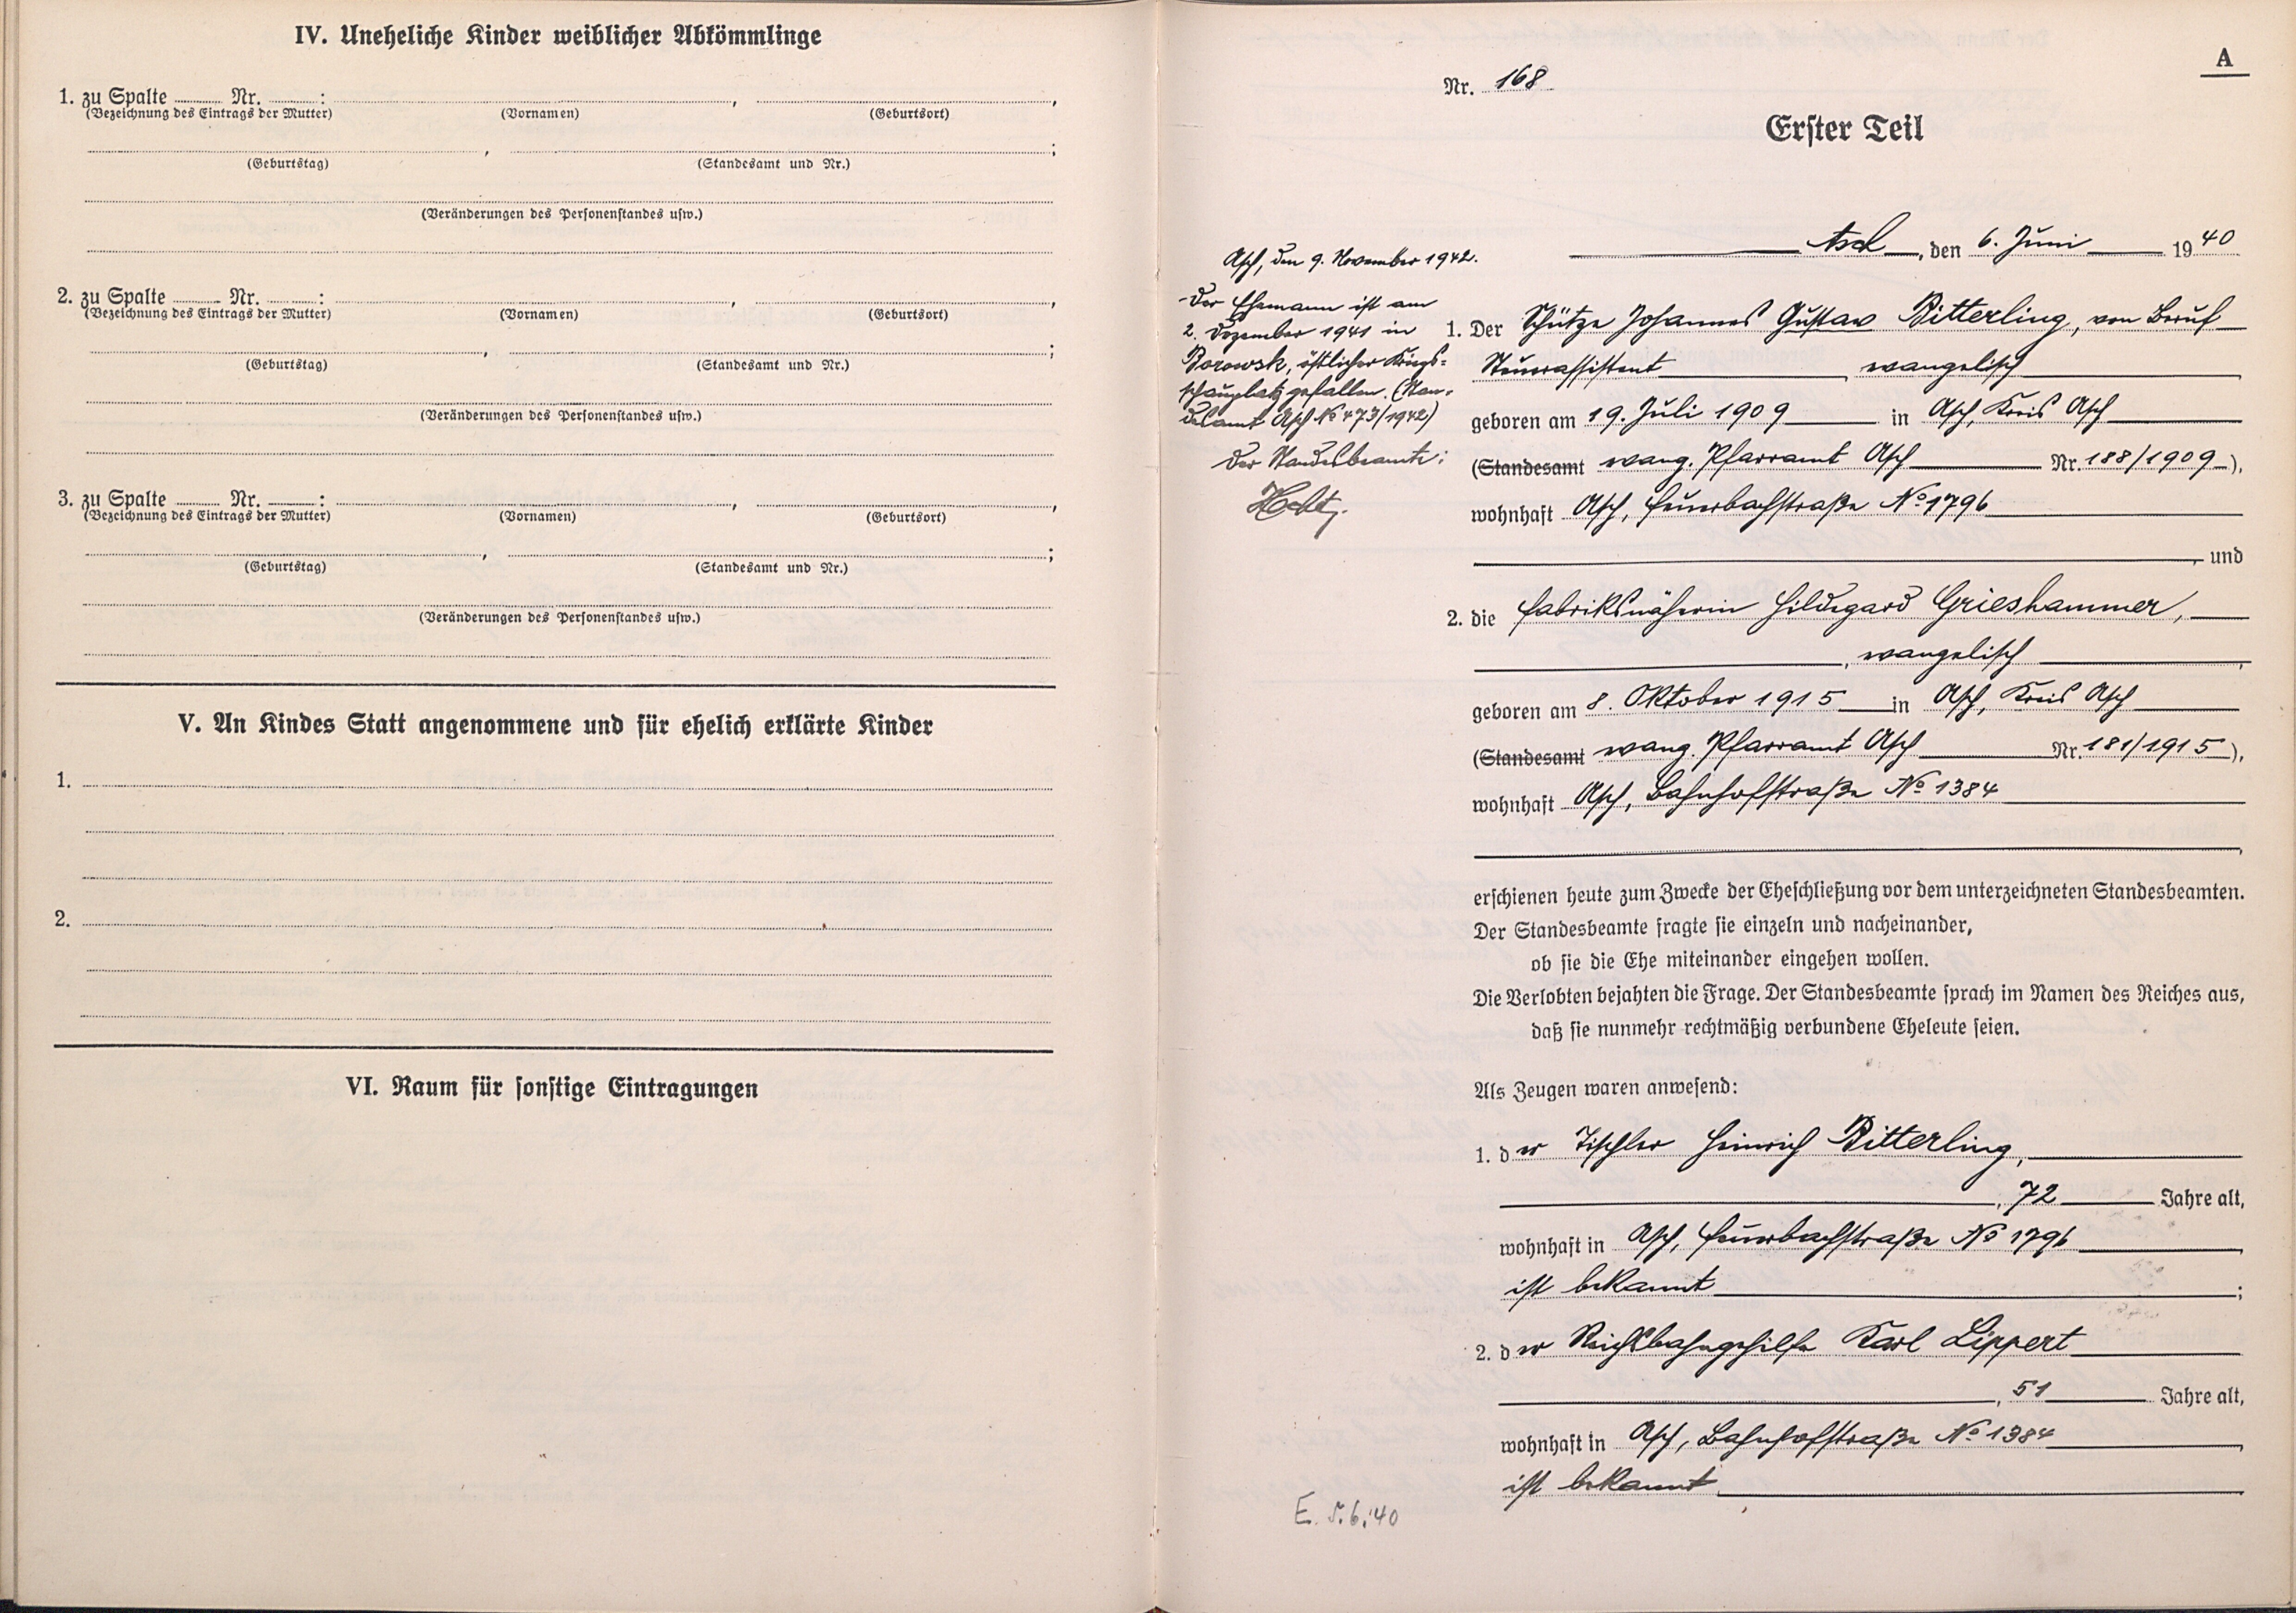 IV. Uneheliche Kinder weiblicher Abkömmlinge
1. zu Spalte ........ Nr. ........: ........, ........,
(Bezeichnung des Eintrags der Mutter) (Vornamen) (Geburtsort)
........, ........;
(Geburtstag) (Standesamt und Nr.)
(Veränderungen des Personenstandes usw.)
2. zu Spalte ........ Nr. ........: ........, ........,
(Bezeichnung des Eintrags der Mutter) (Vornamen) (Geburtsort)
........, ........;
(Geburtstag) (Standesamt und Nr.)
(Veränderungen des Personenstandes usw.)
3. zu Spalte ........ Nr. ........: ........, ........,
(Bezeichnung des Eintrags der Mutter) (Vornamen) (Geburtsort)
........, ........;
(Geburtstag) (Standesamt und Nr.)
(Veränderungen des Personenstandes usw.)
V. An Kindes Statt angenommene und für ehelich erklärte Kinder
1.
2.
VI. Raum für sonstige Eintragungen
A
Nr. 168
Erster Teil
Asch, den 6. Juni 1940
Asch, den 9. November 1942.
Der Ehemann ist am
2. Dezember 1941 in
Borowsk, östlicher Kriegs-
schauplatz gefallen. (Stan-
desamt Asch No 473/1942)
Der Standesbeamte:
1. Der Schütze Johannes Gustav Bitterling, von Beruf
Steuerassistent evangelisch
geboren am 19. Juli 1909 in Asch, Kreis Asch
(Standesamt evang. Pfarramt Asch Nr. 188/1909),
wohnhaft Asch, Feuerbachstraße No 1796
, und
2. die Fabriksnäherin Hildegard Grieshammer,
, evangelisch ,
geboren am 8. Oktober 1915 in Asch, Kreis Asch
(Standesamt evang. Pfarramt Asch Nr. 181/1915),
wohnhaft Asch, Bahnhofstraße No 1384
,
erschienen heute zum Zwecke der Eheschließung vor dem unterzeichneten Standesbeamten.
Der Standesbeamte fragte sie einzeln und nacheinander,
ob sie die Ehe miteinander eingehen wollen.
Die Verlobten bejahten die Frage. Der Standesbeamte sprach im Namen des Reiches aus,
daß sie nunmehr rechtmäßig verbundene Eheleute seien.
Als Zeugen waren anwesend:
1. der Tischler Heinrich Bitterling,
, 72 Jahre alt,
wohnhaft in Asch, Feuerbachstraße No 1796,
ist bekannt ;
2. der Reichsbahngehilfe Karl Lippert
, 51 Jahre alt,
wohnhaft in Asch, Bahnhofstraße No 1384,
ist bekannt
E. 5.6.'40